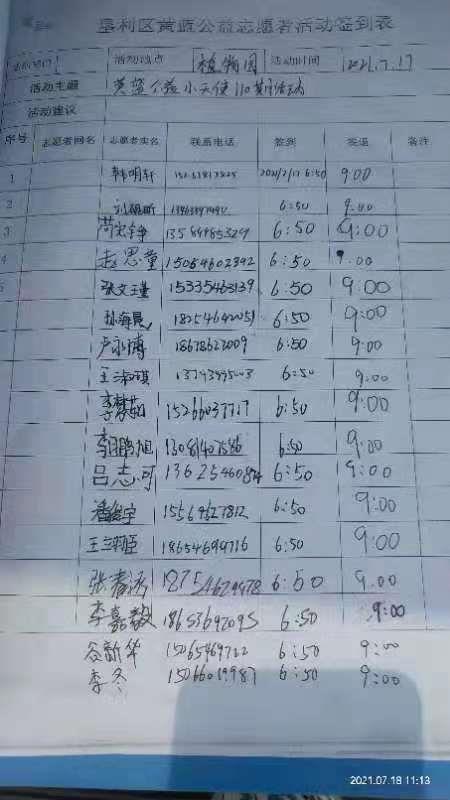 垦利区黄蓝公益志愿者活动签到表
活动地点 植物园 活动时间 2021.7.17
活动主题 黄蓝公益小天使110期活动
活动建议
序号 志愿者网名 志愿者实名 联系电话 签到 签退 备注
1 韩明轩 6:50 9:00
2 6:50 9:00
3 13589485329 6:50 9:00
4 赵思童 15064602392 6:50 9:00
5 张文瑾 15335463139 6:50 9:00
孙海晨 18254642051 6:50 9:00
卢永博 18678623009 6:50 9:00
王淑琪 6:50 9:00
李梦茹 15266037717 6:50 9:00
李鹏旭 6:50 9:00
吕志可 6:50 9:00
15564627812 6:50 9:00
18654694716 6:50 9:00
张春涛 18754629878 6:50 9:00
李嘉毅 18653692095 6:50 9:00
谷新华 15065469722 6:50 9:00
李冬 15066019987 6:50 9:00
2021.07.18 11:13